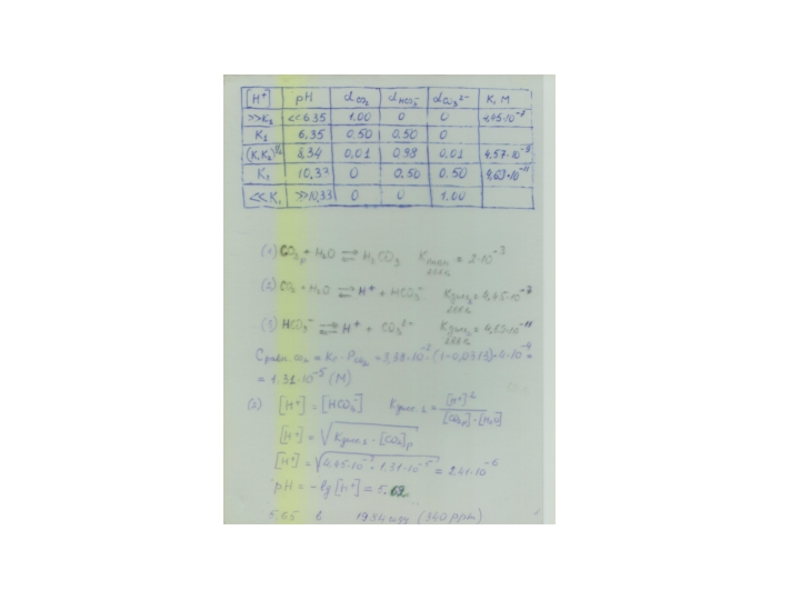 [H⁺] pH αCO₂ αHCO₃⁻ αCO₃²⁻ K, M
>>K₁ <<6.35 1.00 0 0 4,45·10⁻⁷
K₁ 6,35 0,50 0,50 0
(K₁K₂)^½ 8,34 0,01 0,98 0,01 4,57·10⁻⁹
K₂ 10,33 0 0,50 0.50 4,69·10⁻¹¹
<<K₂ >>10,33 0 0 1.00
(1) CO₂p + H₂O ⇄ H₂CO₃ K = 2·10⁻³
(2) CO₂ + H₂O ⇄ H⁺ + HCO₃⁻ Kдис₁ = 4,45·10⁻⁷
(3) HCO₃⁻ ⇄ H⁺ + CO₃²⁻ Kдис₂ =
CO₂ = Kг · PCO₂ = 3,38·10⁻² · (1-0,0313)·4·10⁻⁴ =
= 1.31·10⁻⁵ (M)
(2) [H⁺] = [HCO₃⁻] Kдис.1 = [H⁺]² / [CO₂p]·[H₂O]
[H⁺] = √Kдис.1 · [CO₂]p
[H⁺] = √4,45·10⁻⁷ · 1.31·10⁻⁵ = 2,41·10⁻⁶
pH = -lg [H⁺] = 5.62
5,65 в 1984 году (340 ppm)